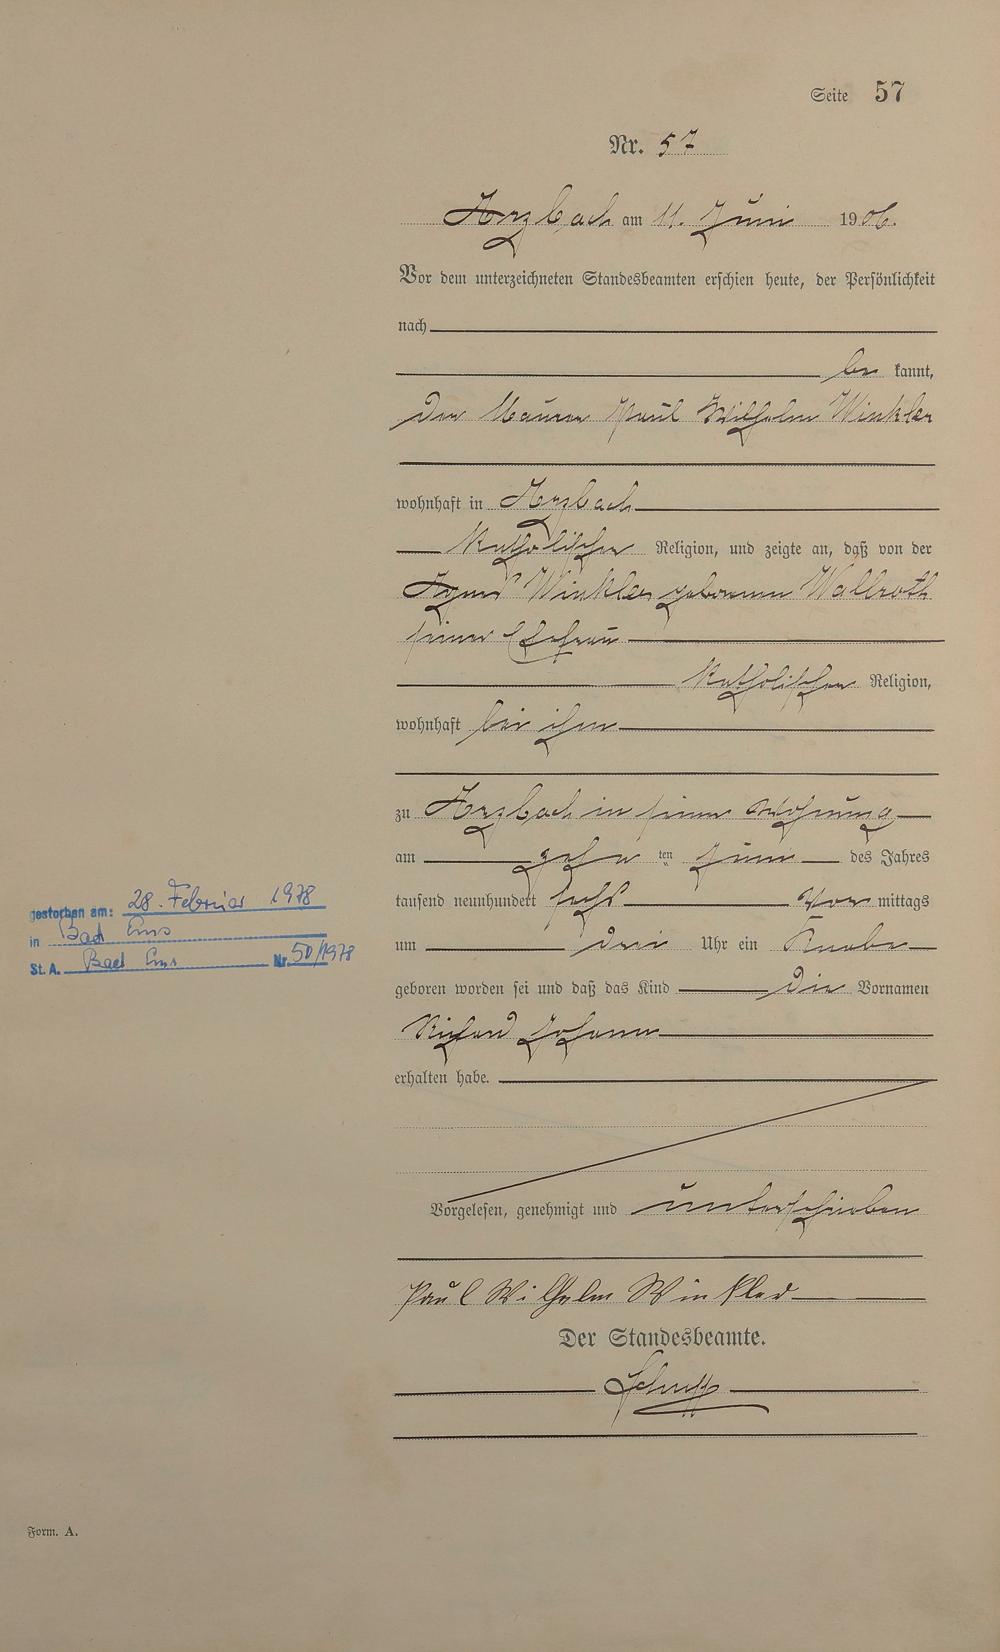 Seite 57
Nr. 57
Arzbach am 11. Juni 1906.
Vor dem unterzeichneten Standesbeamten erschien heute, der Persönlichkeit
nach
be kannt,
der Maurer Paul Wilhelm Winkler
wohnhaft in Arzbach
katholischer Religion, und zeigte an, daß von der
Agnes Winkler geborenen Wallroth
seiner Ehefrau
katholischer Religion,
wohnhaft bei ihm
zu Arzbach in seiner Wohnung
am zehn ten Juni des Jahres
tausend neunhundert sechs Vor mittags
um drei Uhr ein Knabe
geboren worden sei und daß das Kind die Vornamen
Richard Johann
erhalten habe.
Vorgelesen, genehmigt und unterschrieben
Paul Wilhelm Winkler
Der Standesbeamte.
gestorben am: 28. Februar 1978
in Bad Ems
St. A. Bad Ems Nr. 50/1978
Form. A.